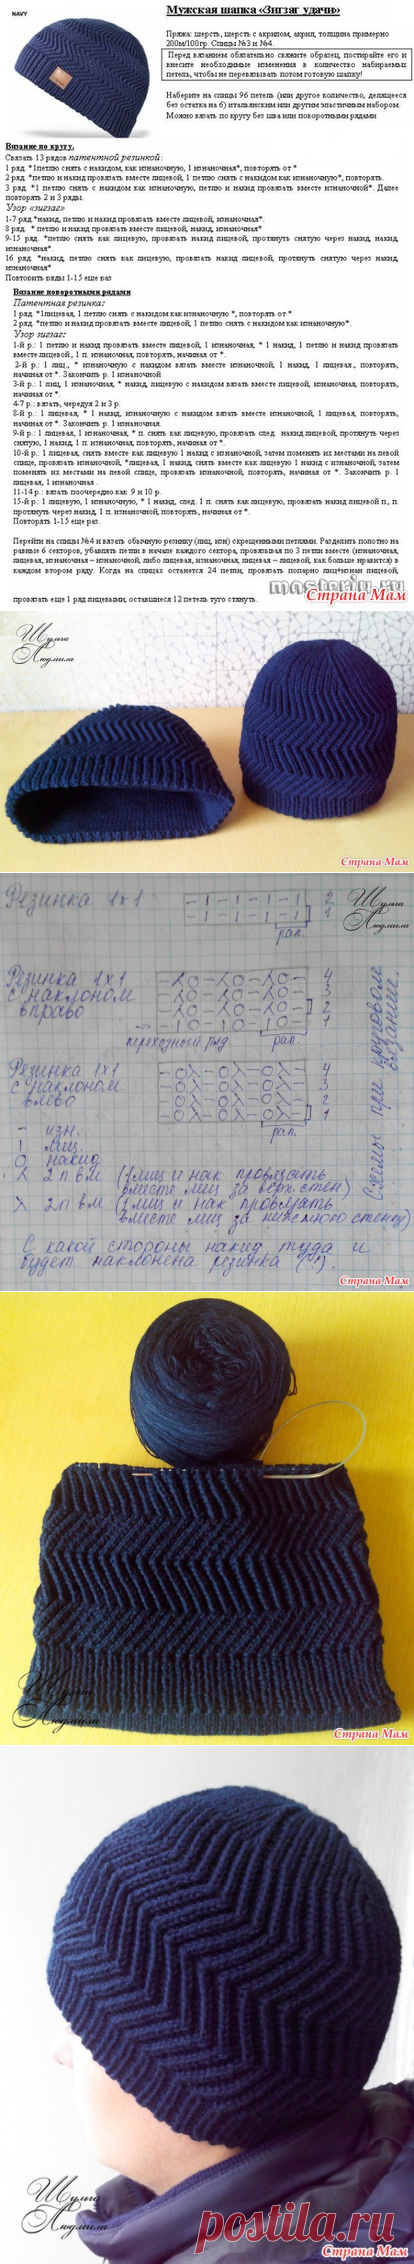 NAVY
Мужская шапка «Зигзаг удачи»
Пряжа: шерсть, шерсть с акрилом, акрил, толщина примерно
200м/100гр. Спицы №3 и №4.
Перед вязанием обязательно свяжите образец, постирайте его и
внесите необходимые изменения в количество набираемых
петель, чтобы не перевязывать потом готовую шапку!
Наберите на спицы 96 петель (или другое количество, делящееся
без остатка на 6) итальянским или другим эластичным набором.
Можно вязать по кругу без шва или поворотными рядами
Вязание по кругу.
Связать 13 рядов патентной резинкой:
1 ряд. *1петлю снять с накидом, как изнаночную, 1 изнаночная*, повторять от *
2 ряд. *петлю и накид провязать вместе лицевой, 1 петлю снять с накидом как изнаночную*, повторять.
3 ряд. *1 петлю снять с накидом как изнаночную, петлю и накид провязать вместе изнаночной*. Далее
повторять 2 и 3 ряды.
Узор «зигзаг»
1-7 ряд.*накид, петлю и накид провязать вместе лицевой, изнаночная*.
8 ряд. * петлю и накид провязать вместе лицевой, накид, изнаночная*
9-15 ряд. *петлю снять как лицевую, провязать накид лицевой, протянуть снятую через накид, накид,
изнаночная*.
16 ряд. *накид, петлю снять как лицевую, провязать накид лицевой, протянуть снятую через накид,
изнаночная*
Повторить ряды 1-15 еще раз
Вязание поворотными рядами
Патентная резинка:
1 ряд. *1лицевая, 1 петлю снять с накидом как изнаночную *, повторять от *
2 ряд. *петлю и накид провязать вместе лицевой, 1 петлю снять с накидом как изнаночную*.
Узор зигзаг:
1-й р.: 1 петлю и накид провязать вместе лицевой, 1 изнаночная, * 1 накид, 1 петлю и накид провязать
вместе лицевой., 1 п. изнаночная, повторять, начиная от *.
2-й р.: 1 лиц., * изнаночную с накидом вязать вместе изнаночной, 1 накид, 1 лицевая., повторять,
начиная от *. Закончить р. 1 изнаночной
3-й р.: 1 лиц, 1 изнаночная, * накид, лицевую с накидом вязать вместе лицевой, изнаночная, повторять,
начиная от *.
4-7 р.: вязать, чередуя 2 и 3 р.
8-й р.: 1 лицевая, * 1 накид, изнаночную с накидом вязать вместе изнаночной, 1 лицевая, повторять,
начиная от *. Закончить р. 1 изнаночная.
9-й р.: 1 лицевая, 1 изнаночная, * п. снять как лицевую, провязать след. накид лицевой, протянуть через
снятую, 1 накид, 1 п. изнаночная, повторять, начиная от *.
10-й р.: 1 лицевая, снять вместе как лицевую 1 накид с изнаночной, затем поменять их местами на левой
спице, провязать изнаночной, *лицевая, 1 накид, снять вместе как лицевую 1 накид с изнаночной, затем
поменять их местами на левой спице, провязать изнаночной, повторять, начиная от *. Закончить р. 1
лицевая, 1 изнаночная .
11-14 р.: вязать поочередно как 9 и 10 р.
15-й р.: 1 лицевую, 1 изнаночную, * 1 накид, след. 1 п. снять как лицевую, провязать накид лицевой п., п.
протянуть через накид, 1 п. изночной, повторять, начиная от *.
Повторять 1-15 еще раз.
Перейти на спицы №4 и вязать обычную резинку (лиц, изн) скрещенными петлями. Разделить полотно на
равные 6 секторов, убавлять петли в начале каждого сектора, провязывая по 3 петли вместе (изнаночная,
лицевая, изнаночная – изнаночной, либо лицевая, изнаночная, лицевая – лицевой, как больше нравится) в
каждом втором ряду. Когда на спицах останется 24 петли, провязать попарно лицевой,
провязать еще 1 ряд лицевыми, оставшиеся 12 петель туго стянуть.
masterju.ru
Страна Мам
Шульга
Людмила
Страна Мам
Резинка 1х1
- 1 - 1 - 1 - 1 2
- 1 - 1 - 1 - 1 1
рап.
Шульга
Людмила
Резинка 1х1
с наклоном
вправо
4
3
2
1
переходный ряд
рап.
Резинка 1х1
с наклоном
влево
4
3
2
1
рап.
Схемы при круговом
вязании.
- изн.
1 лиц.
О накид
2 п вм (1 лиц и нак провязать
вместе лиц за верх. стен)
2 п вм (1 лиц и нак провязать
вместе лиц за нижнюю стенку)
С какой стороны накид туда и
будет наклонена резинка (!).
Страна Мам
Шульга
Людмила
Страна Мам
Шульга
Людмила
postila.ru
Страна Мам